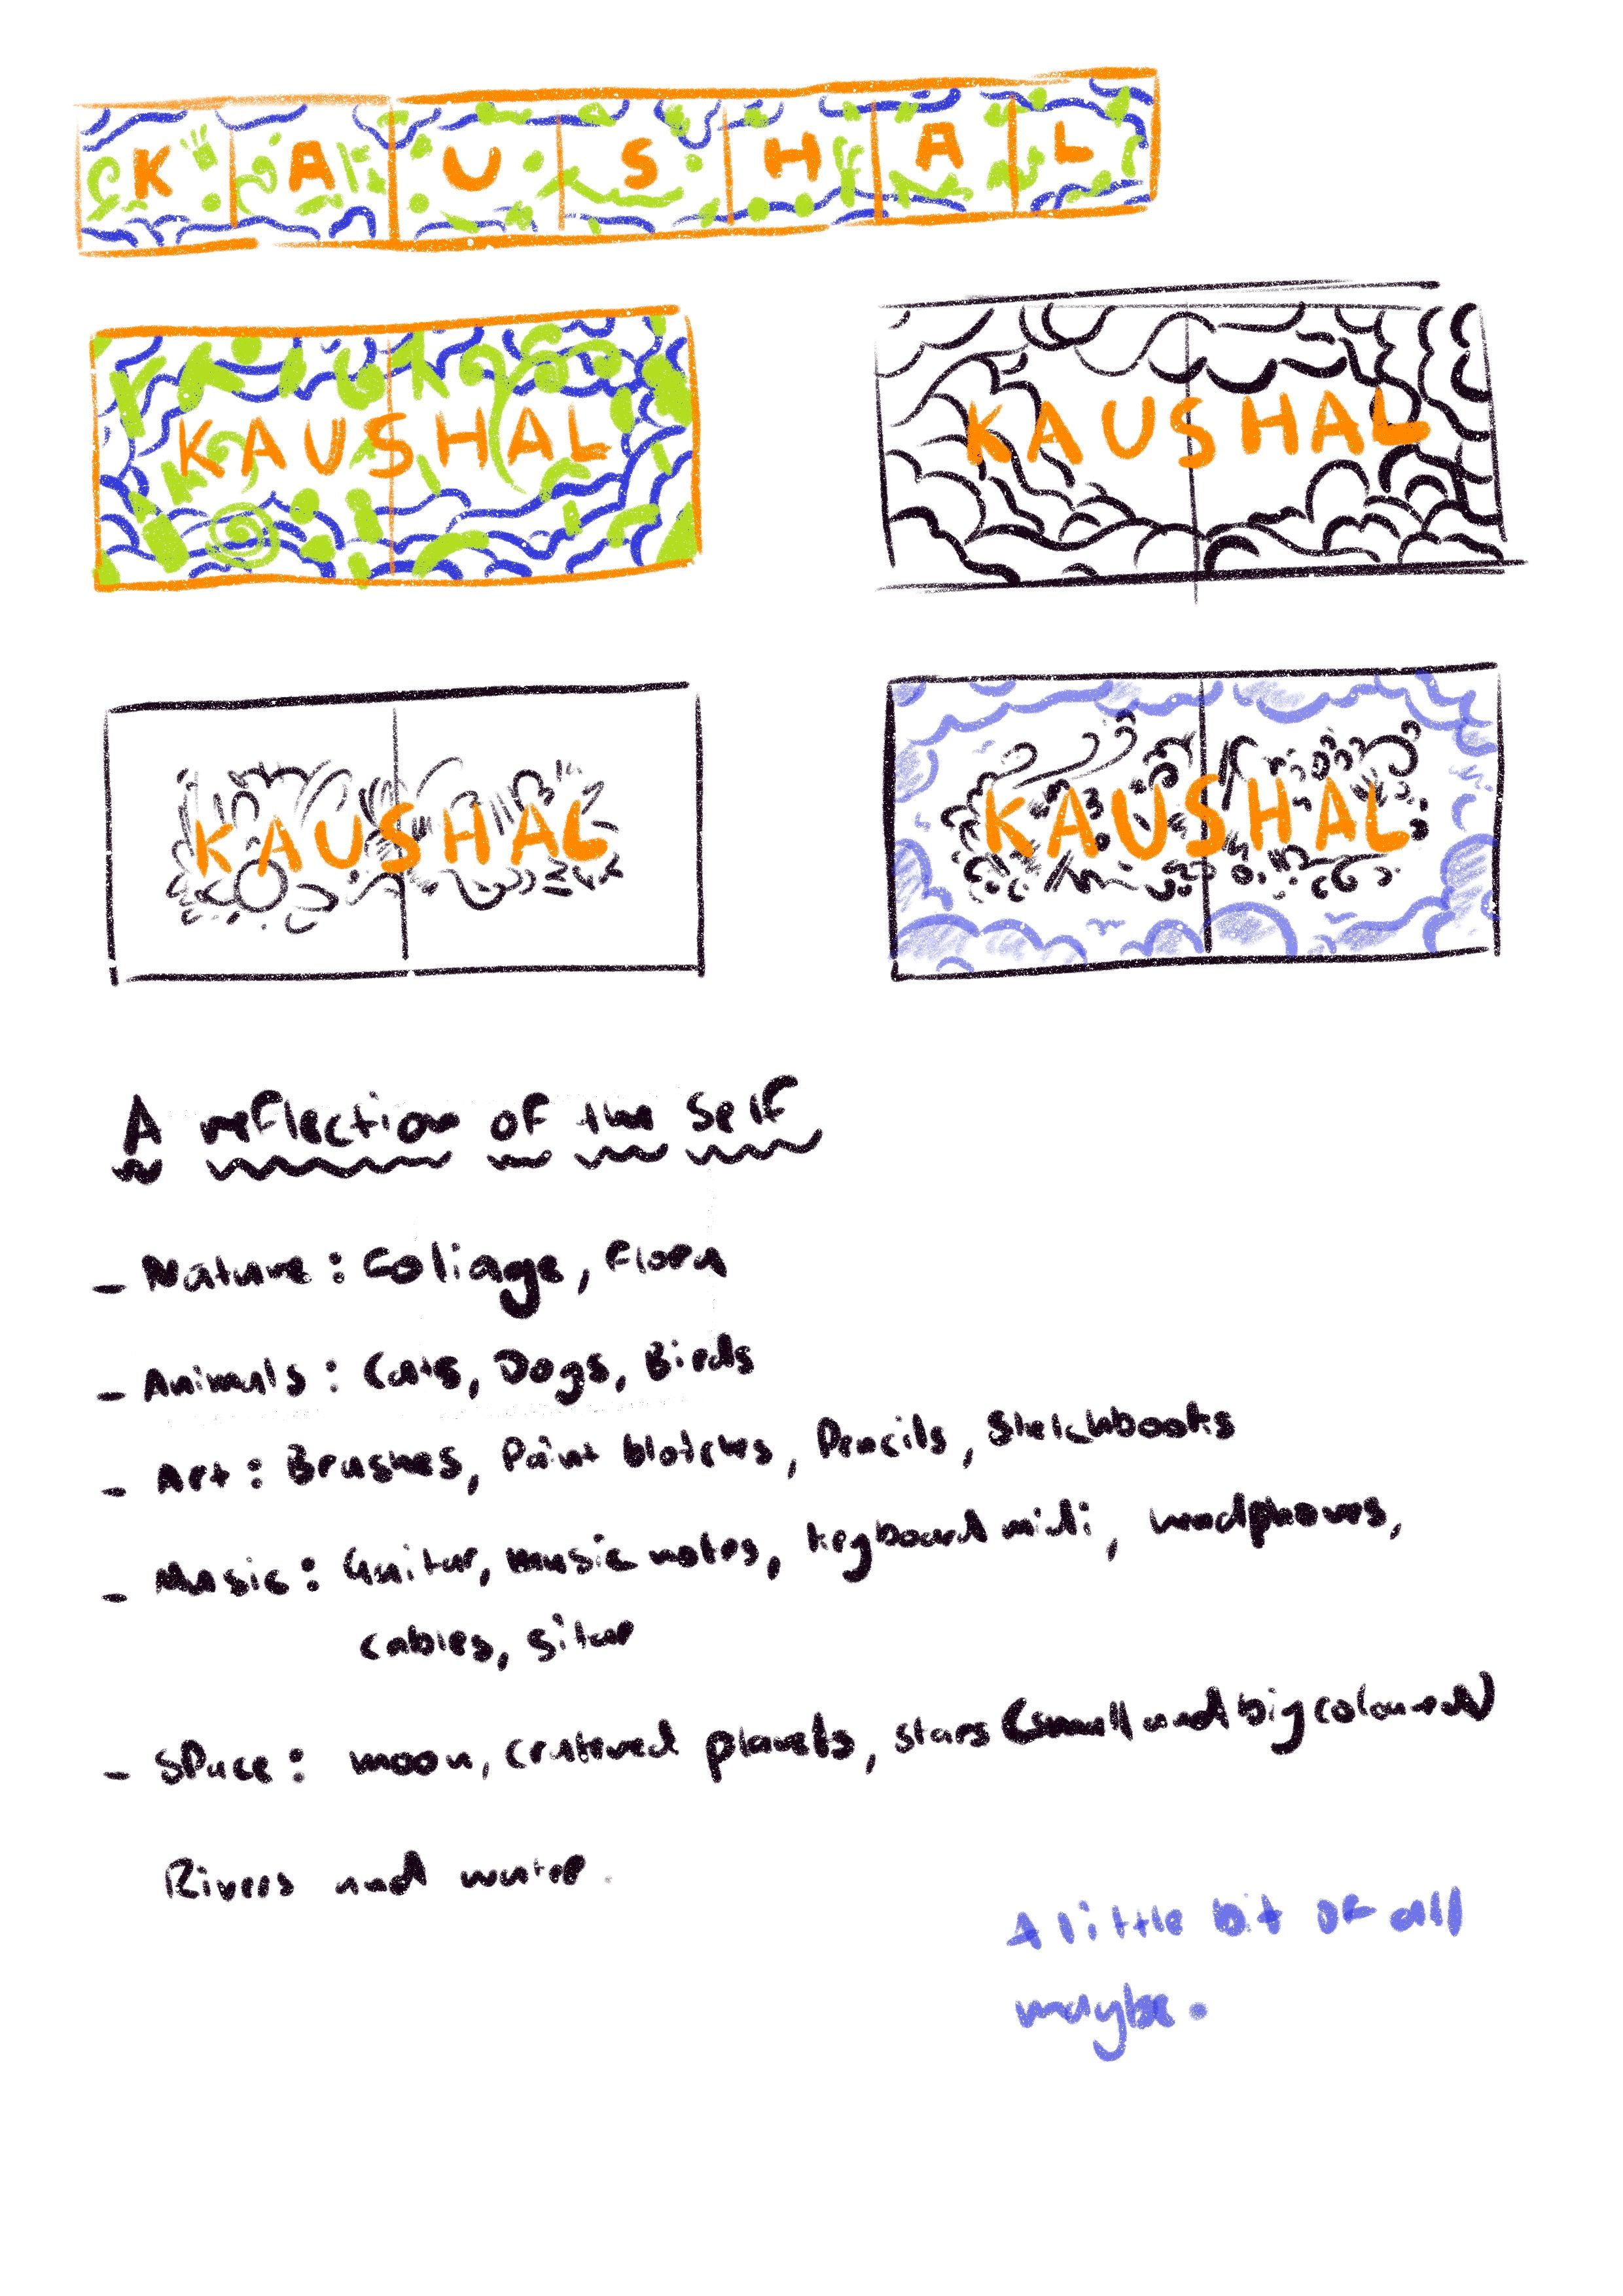 K A U S H A L
KAUSHAL
KAUSHAL
KAUSHAL
KAUSHAL
A reflection of the Self
- Nature : Foliage, Flora
- Animals : Cats, Dogs, Birds
- Art : Brushes, Paint blotches, Pencils, Sketchbooks
- Music : Guitar, music notes, keyboard midi, headphones,
cables, sitar
- Space : moon, cratered planets, stars (small and big coloured)
Rivers and water.
A little bit of all
maybe.